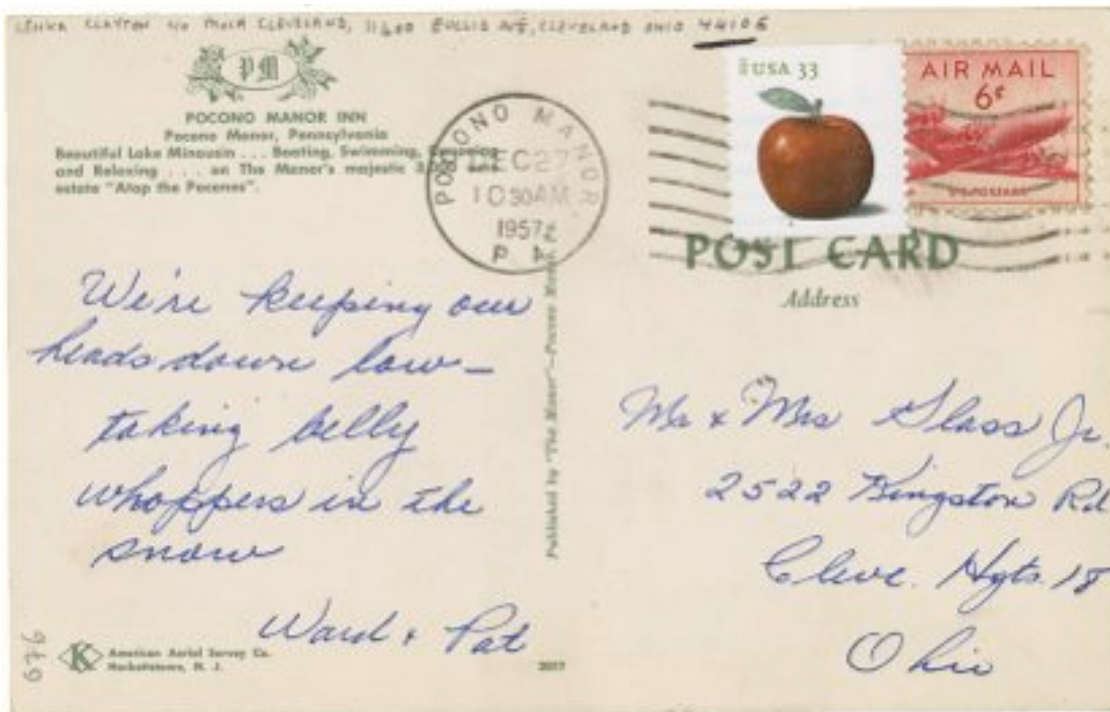 LENKA CLAYTON c/o MOCA CLEVELAND, 11400 EUCLID AVE, CLEVELAND OHIO 44106
PM
POCONO MANOR INN
Pocono Manor, Pennsylvania
Beautiful Lake Minausin . . . Boating, Swimming,
and Relaxing . . . on The Manor's majestic
estate "Atop the Poconos".
POCONO MANOR
DEC 27
10 30 AM
1957
PA
USA 33
AIR MAIL
6¢
U.S. POSTAGE
POST CARD
Address
We're keeping our
heads down low—
taking belly
whoppers in the
snow
Ward & Pat
Mr & Mrs Glass Jr.
2522 Kingston Rd
Cleve. Hgts. 18
Ohio
Published by "The Manor"—Pocono Manor,
676
K
American Aerial Survey Co.
Hackettstown, N. J.